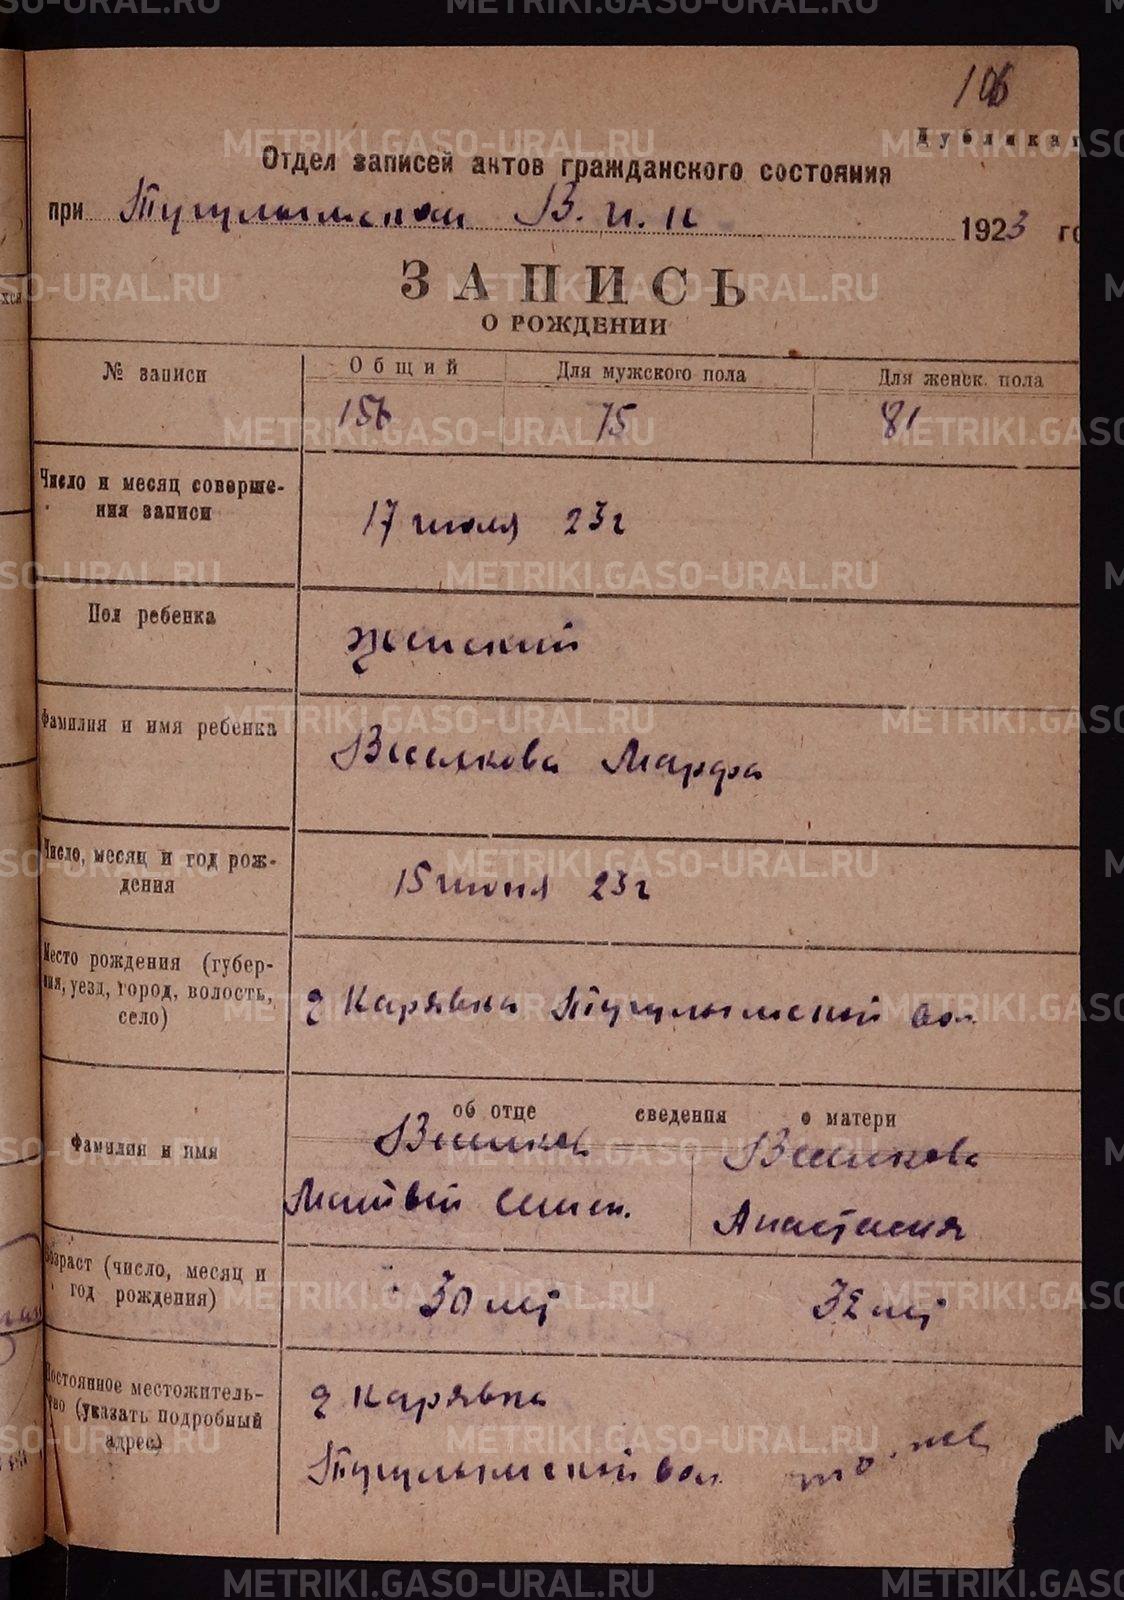 106
Дубликат
Отдел записей актов гражданского состояния
при Тугулымском В. и. к 1923 го
ЗАПИСЬ
О РОЖДЕНИИ
№ записи
Общий Для мужского пола Для женск. пола
156 75 81
Число и месяц соверше-
ния записи
17 июля 23 г
Пол ребенка
женский
Фамилия и имя ребенка
Марфа
Число, месяц и год рож-
дения
15 июня 23 г
Место рождения (губер-
ния, уезд, город, волость,
село)
д Карявка Тугулымской вол.
об отце сведения о матери
Фамилия и имя
Матвей
Анастасия
Возраст (число, месяц и
год рождения)
30 лет 32 лет
Постоянное местожитель-
тво (указать подробный
адрес)
д Карявка
Тугулымской вол то-же
METRIKI.GASO-URAL.RU